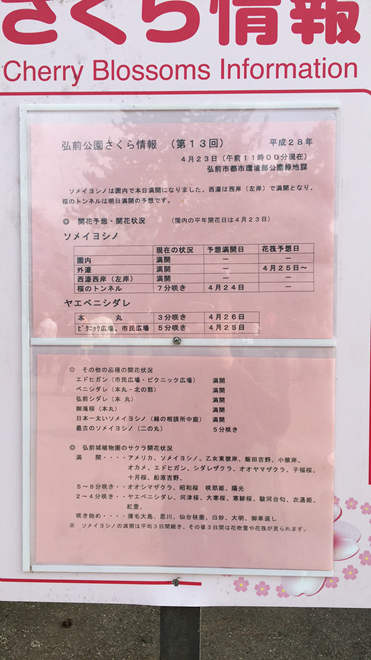 さくら情報
Cherry Blossoms Information
弘前公園さくら情報 (第13回) 平成28年
4月23日(午前11時00分現在)
弘前市都市環境部公園緑地課
ソメイヨシノは園内で本日満開になりました。西濠は西岸(左岸)で満開となり、
桜のトンネルは明日満開の予想です。
◎ 開花予想・開花状況 (園内の平年開花日は4月23日)
ソメイヨシノ
現在の状況 予想満開日 花筏予想日
園内 満開 － －
外濠 満開 － 4月25日～
西濠西岸(左岸) 満開 － －
桜のトンネル 7分咲き 4月24日 －
ヤエベニシダレ
本 丸 3分咲き 4月26日
ピクニック広場、市民広場 5分咲き 4月25日
◎ その他の品種の開花状況
エドヒガン(市民広場・ピクニック広場) 満開
ベニシダレ(本丸・北の郭) 満開
弘前シダレ(本丸) 満開
御滝桜(本丸) 満開
日本一太いソメイヨシノ(緑の相談所中庭) 満開
最古のソメイヨシノ(二の丸) 5分咲き
◎ 弘前城植物園のサクラ開花状況
満 開・・・・アメリカ、ソメイヨシノ、乙女東彼岸、飯田吉野、小彼岸、
オカメ、エドヒガン、シダレザクラ、オオヤマザクラ、子福桜、
十月桜、船原吉野、
5～8分咲き・・オオシマザクラ、昭和桜 咲耶姫、陽光
2～4分咲き・・ヤエベニシダレ、河津桜、大寒桜、寒緋桜、駿河台匂、衣通姫、
紅豊、
咲き始め・・・・薄毛大島、思川、仙台枝垂、白妙、大明、御車返し
※ ソメイヨシノの満開は平均3日間続き、その後3日間は花吹雪や花筏が見られます。